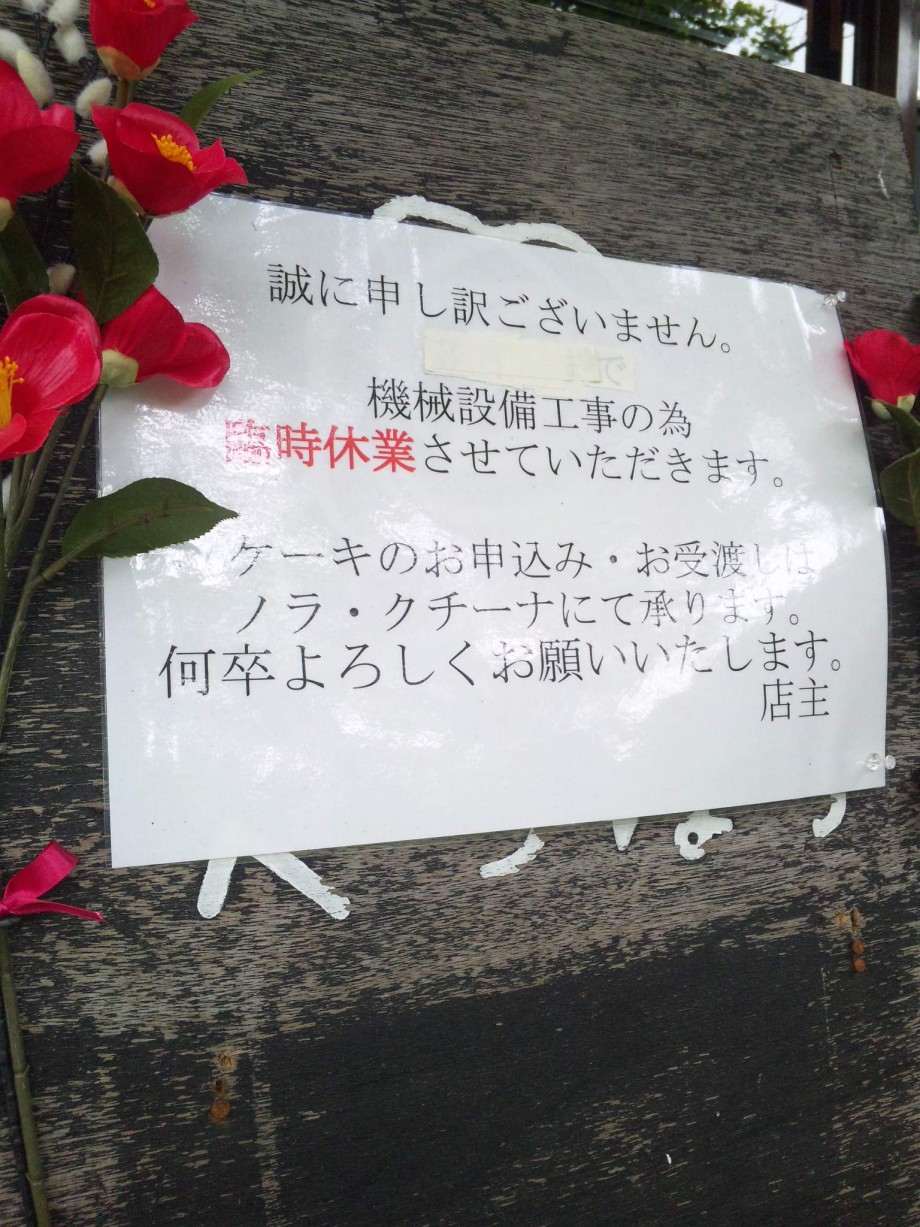 誠に申し訳ございません。
機械設備工事の為
臨時休業させていただきます。
ケーキのお申込み・お受渡しは
ノラ・クチーナにて承ります。
何卒よろしくお願いいたします。
店主